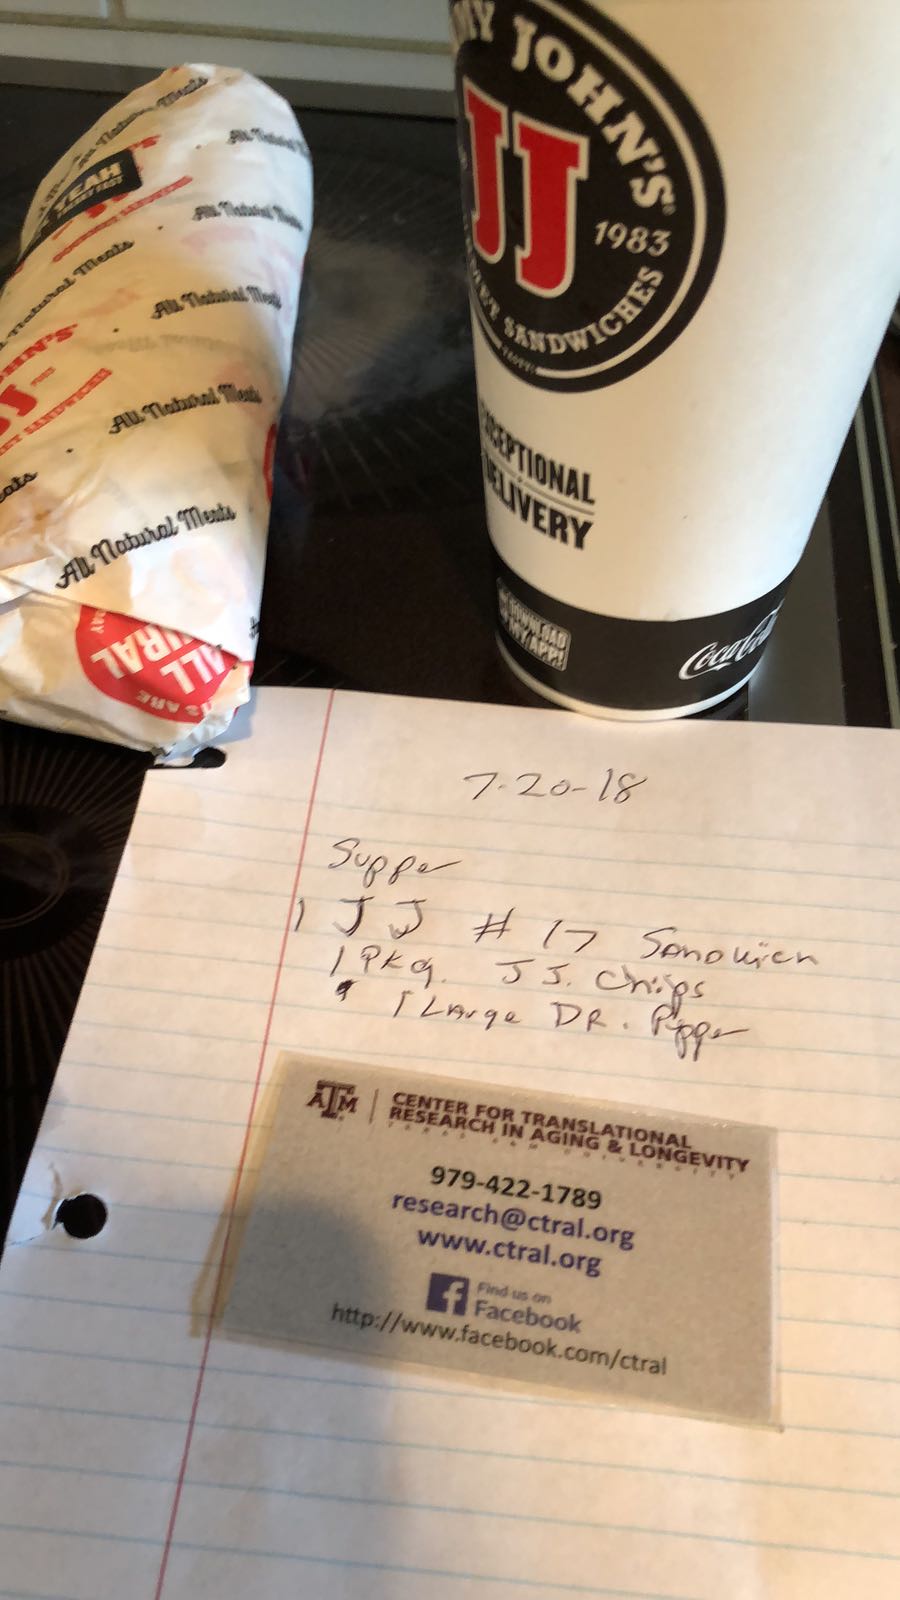 All Natural Meats
YEAH
All Natural Meats
All Natural Meats
All Natural Meats
All Natural Meats
JJ
All Natural Meats
ALL
JIMMY JOHN'S
JJ
1983
SANDWICHES
EXCEPTIONAL
DELIVERY
DOWNLOAD
MY APP!
Coca-Cola
7-20-18
Supper
1 JJ # 17 Sandwich
1 Pkg. JJ. Chips
1 Large DR. Pepper
ATM | CENTER FOR TRANSLATIONAL
RESEARCH IN AGING & LONGEVITY
TEXAS A&M UNIVERSITY
979-422-1789
research@ctral.org
www.ctral.org
f Find us on
Facebook
http://www.facebook.com/ctral